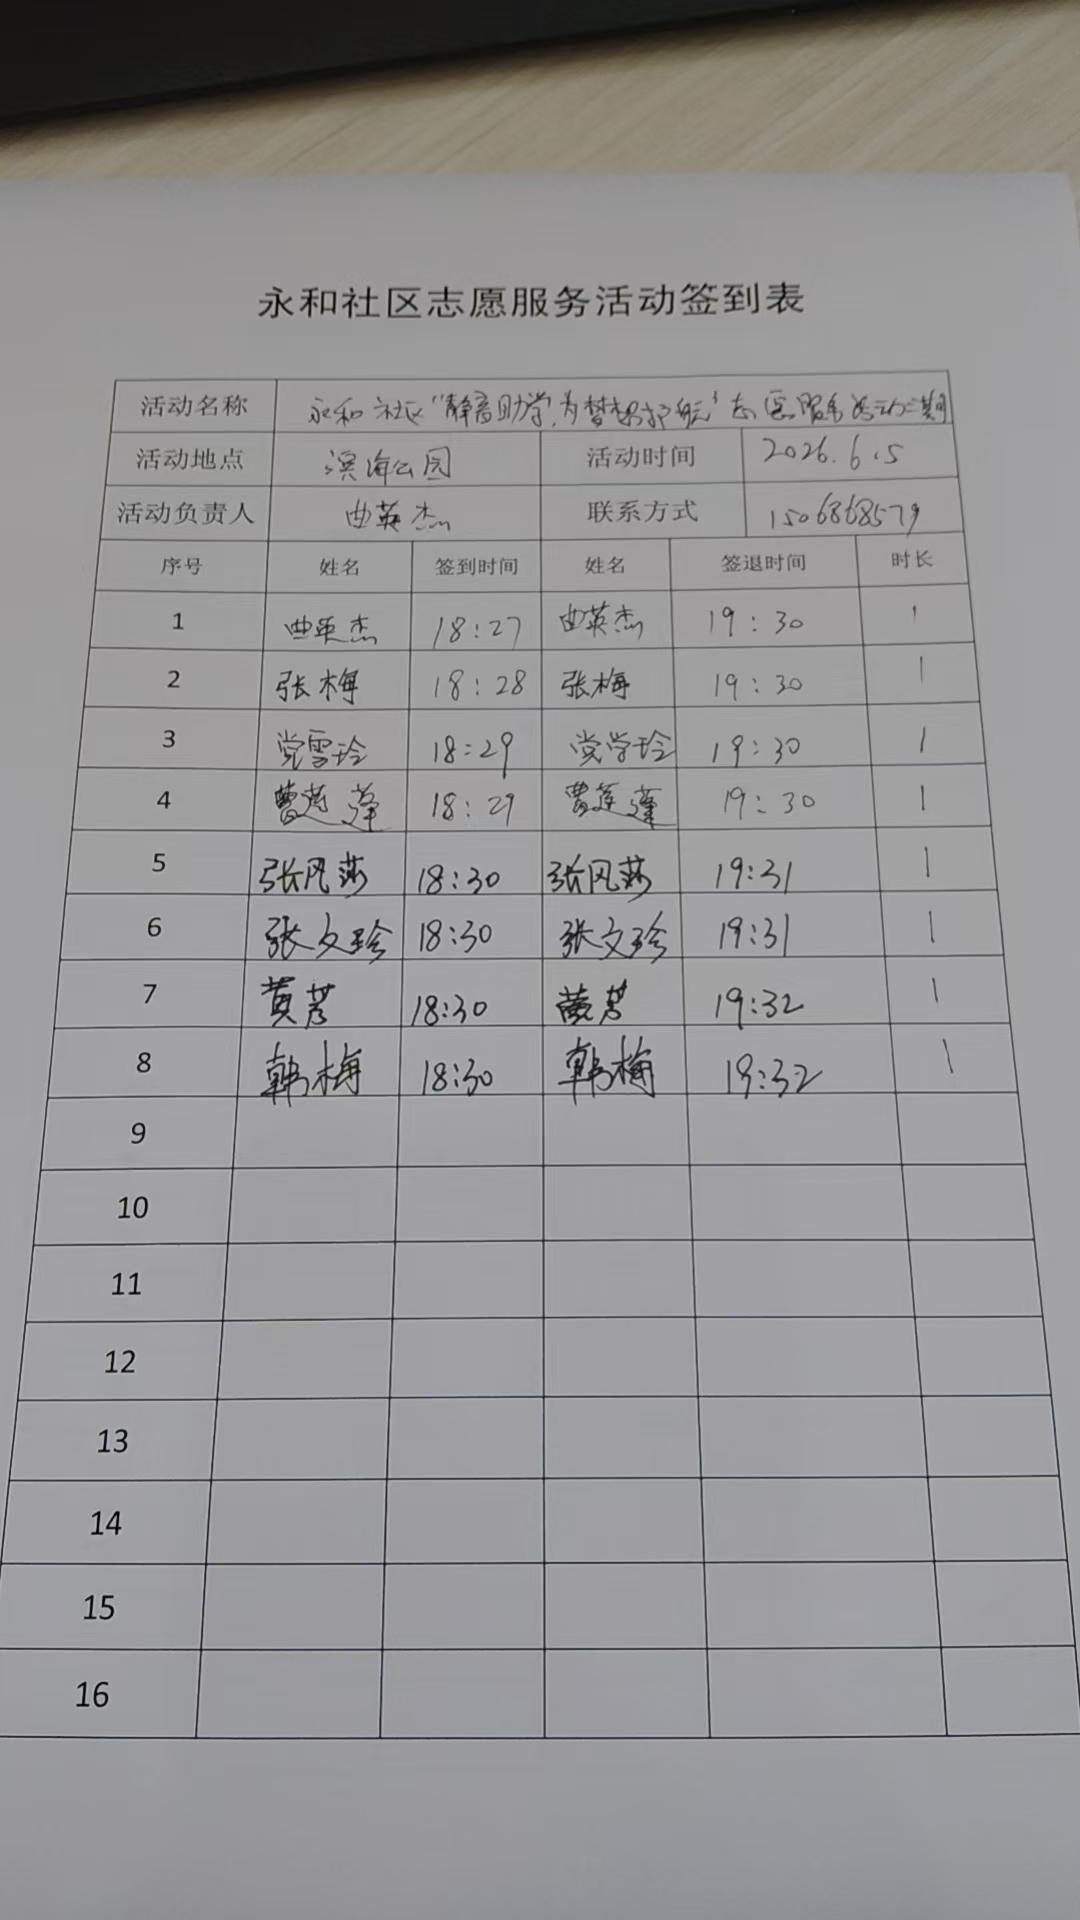 永和社区志愿服务活动签到表
活动名称 永和社区"静音助学,为梦想护航"志愿服务活动二期
活动地点 滨海公园 活动时间 2026.6.5
活动负责人 曲英杰 联系方式 1506868579
序号 姓名 签到时间 姓名 签退时间 时长
1 曲英杰 18:27 曲英杰 19:30 1
2 张梅 18:28 张梅 19:30 1
3 党雪玲 18:29 党学玲 19:30 1
4 曹莲莲 18:29 曹莲莲 19:30 1
5 张风莎 18:30 张风莎 19:31 1
6 张文珍 18:30 张文珍 19:31 1
7 黄芳 18:30 黄芳 19:32 1
8 韩梅 18:30 韩梅 19:32 1
9
10
11
12
13
14
15
16